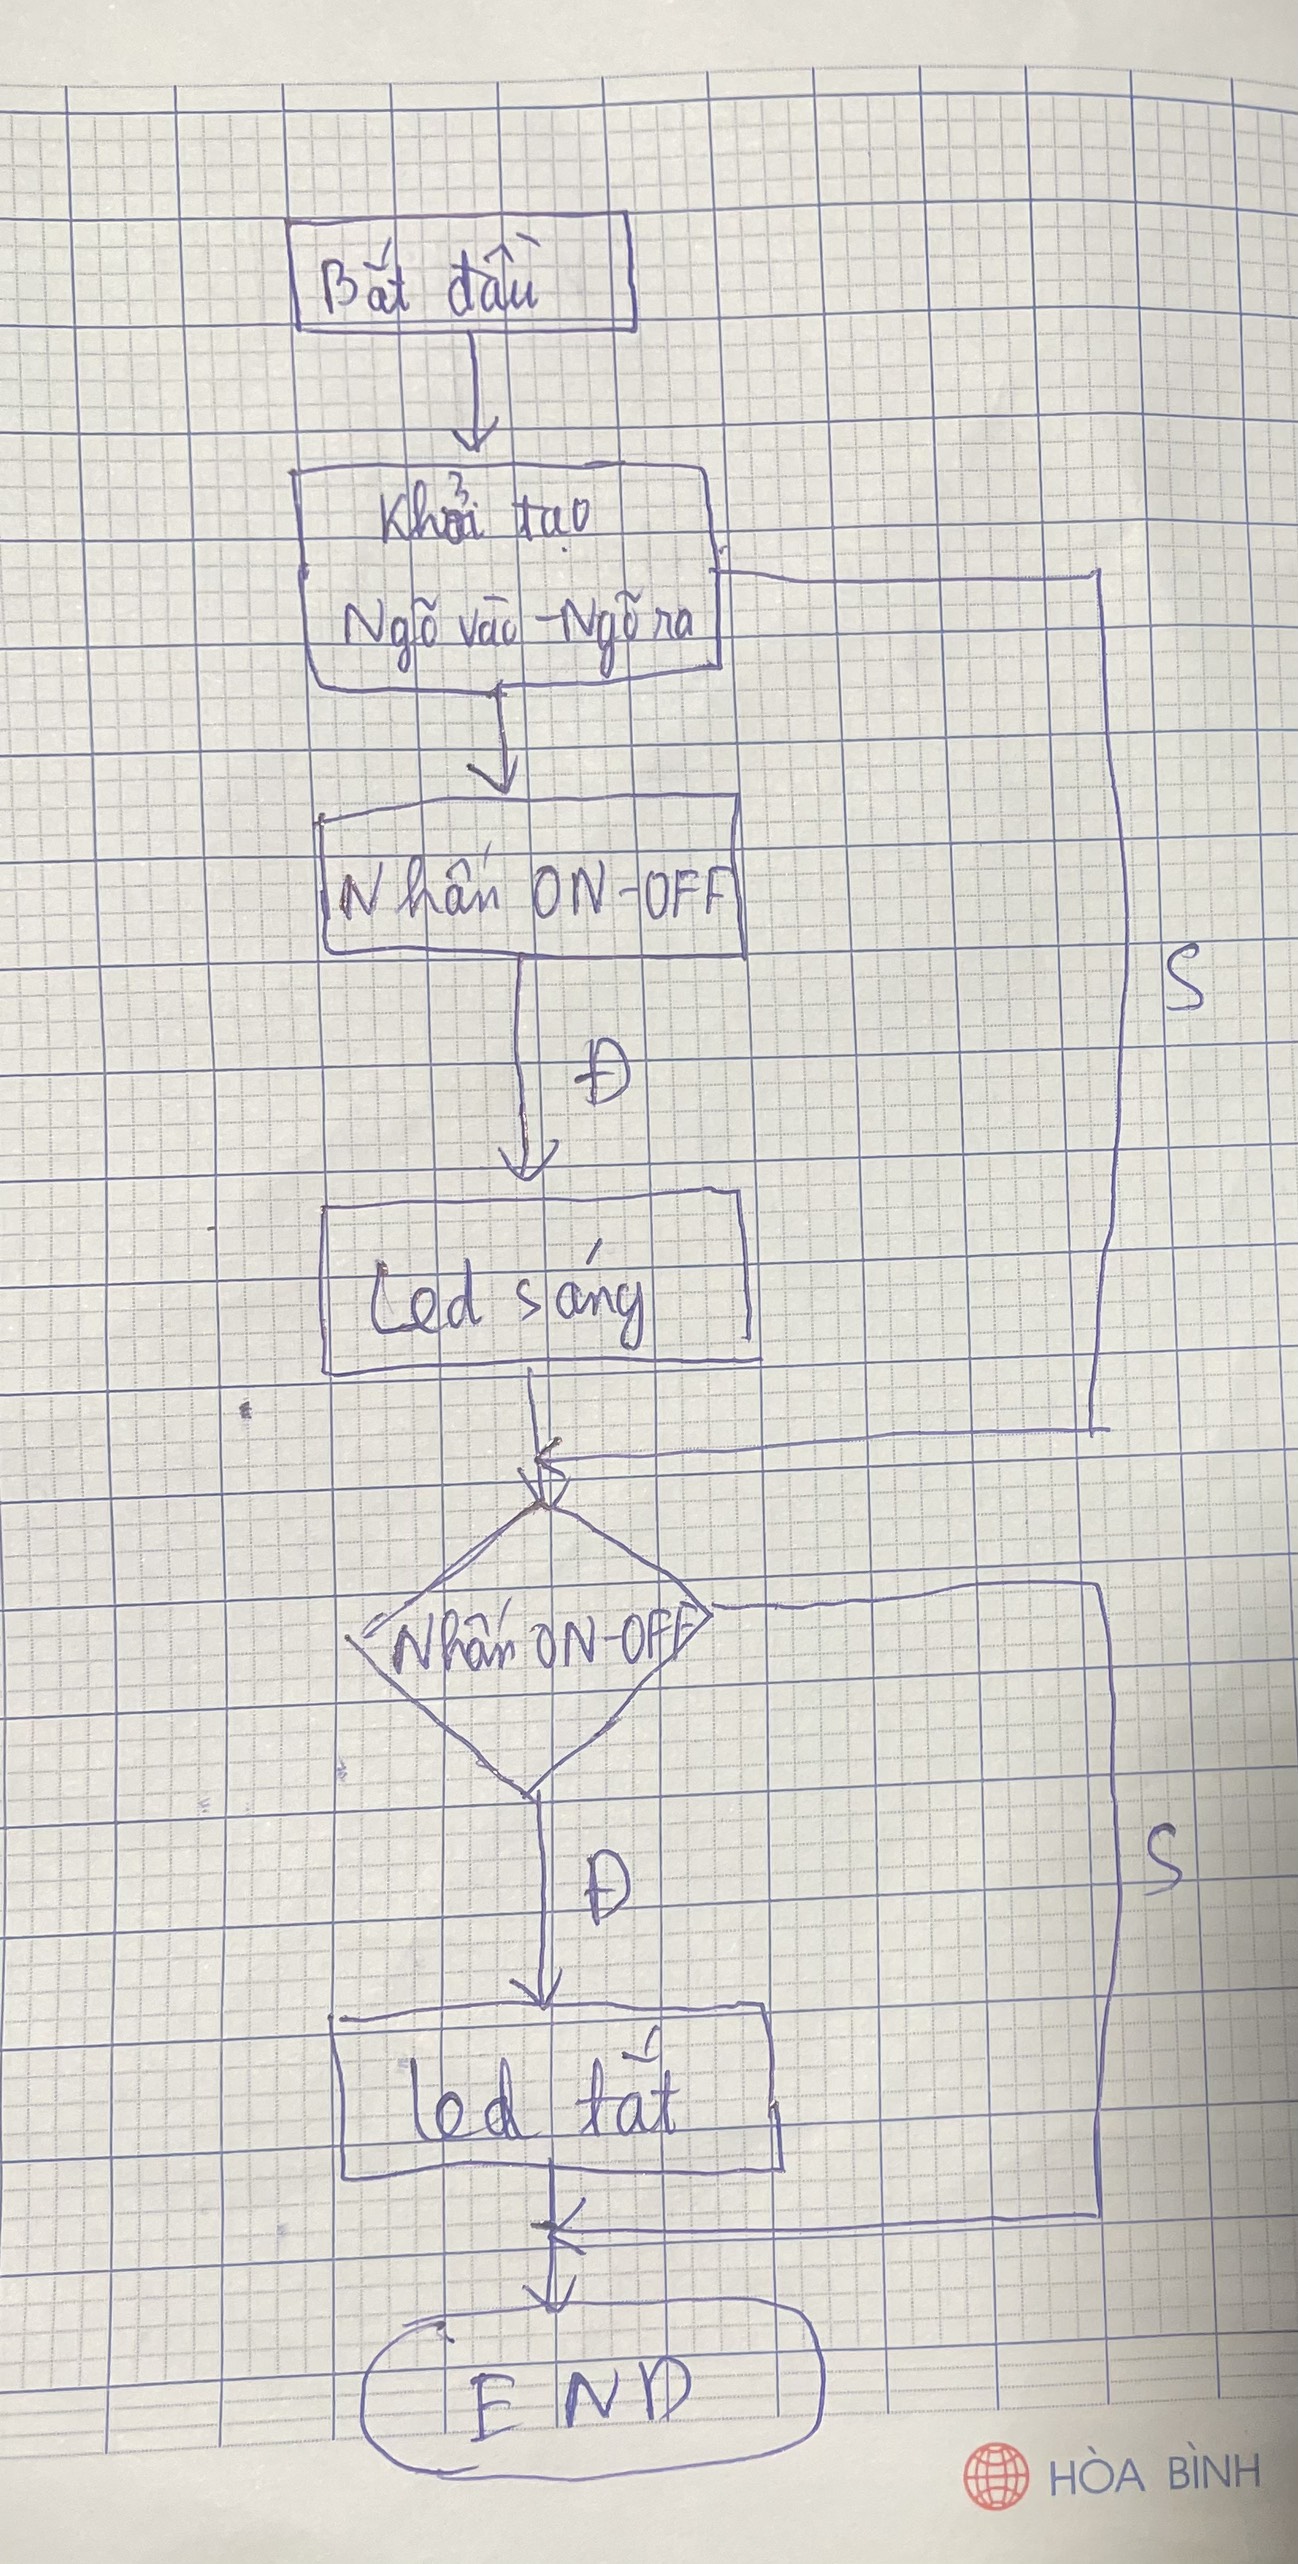 Bắt đầu
Khởi tạo
Ngõ vào - Ngõ ra
Nhấn ON-OFF
S
Đ
Led sáng
Nhấn ON-OFF
S
Đ
led tắt
END
HÒA BÌNH